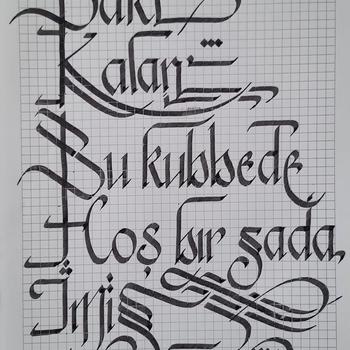 Baki
Kalan
Bu kubbede
Hoş bir sada,
İmiş